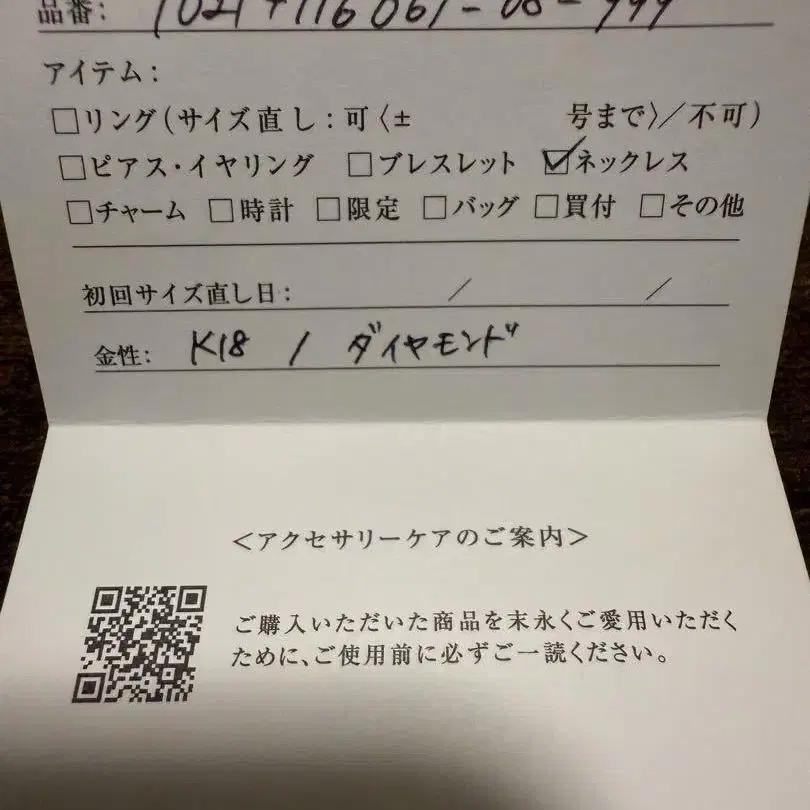 品番:
アイテム:
□リング(サイズ直し:可〈± 号まで〉/不可)
□ピアス・イヤリング □ブレスレット ☑ネックレス
□チャーム □時計 □限定 □バッグ □買付 □その他
初回サイズ直し日: / /
金性: K18 / ダイヤモンド
<アクセサリーケアのご案内>
ご購入いただいた商品を末永くご愛用いただく
ために、ご使用前に必ずご一読ください。